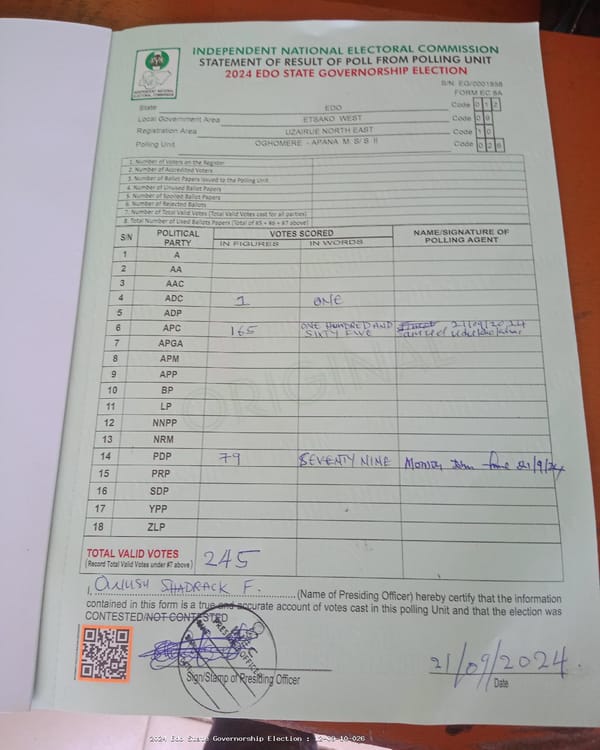 INDEPENDENT NATIONAL ELECTORAL COMMISSION
STATEMENT OF RESULT OF POLL FROM POLLING UNIT
2024 EDO STATE GOVERNORSHIP ELECTION
S/N: EG/0001958
FORM EC 8A
State EDO Code 0 1 2
Local Government Area ETSAKO WEST Code 0 9
Registration Area UZAIRUE NORTH EAST Code 1 0
Polling Unit OGHOMERE - APANA M S/S II Code 0 2 6
1. Number of Voters on the Register
2. Number of Accredited Voters
3. Number of Ballot Papers issued to the Polling Unit
4. Number of Unused Ballot Papers
5. Number of Spoiled Ballot Papers
6. Number of Rejected Ballots
7. Number of Total Valid Votes (Total Valid Votes cast for all parties)
8. Total Number of Used Ballots Papers (Total of #5 + #6 + #7 above)
S/N POLITICAL PARTY VOTES SCORED NAME/SIGNATURE OF POLLING AGENT
IN FIGURES IN WORDS
1 A
2 AA
3 AAC
4 ADC 1 ONE
5 ADP
6 APC 165 ONE HUNDRED AND SIXTY FIVE 21/09/2024
7 APGA
8 APM
9 APP
10 BP
11 LP
12 NNPP
13 NRM
14 PDP 79 SEVENTY NINE 21/9/24
15 PRP
16 SDP
17 YPP
18 ZLP
ORIGINAL
TOTAL VALID VOTES 245
(Record Total Valid Votes under #7 above)
I, SHADRACK F. (Name of Presiding Officer) hereby certify that the information
contained in this form is a true and accurate account of votes cast in this polling Unit and that the election was
CONTESTED/NOT CONTESTED
21/09/2024.
Sign/Stamp of Presiding Officer Date
2024 Edo State Governorship Election : 12-09-10-026